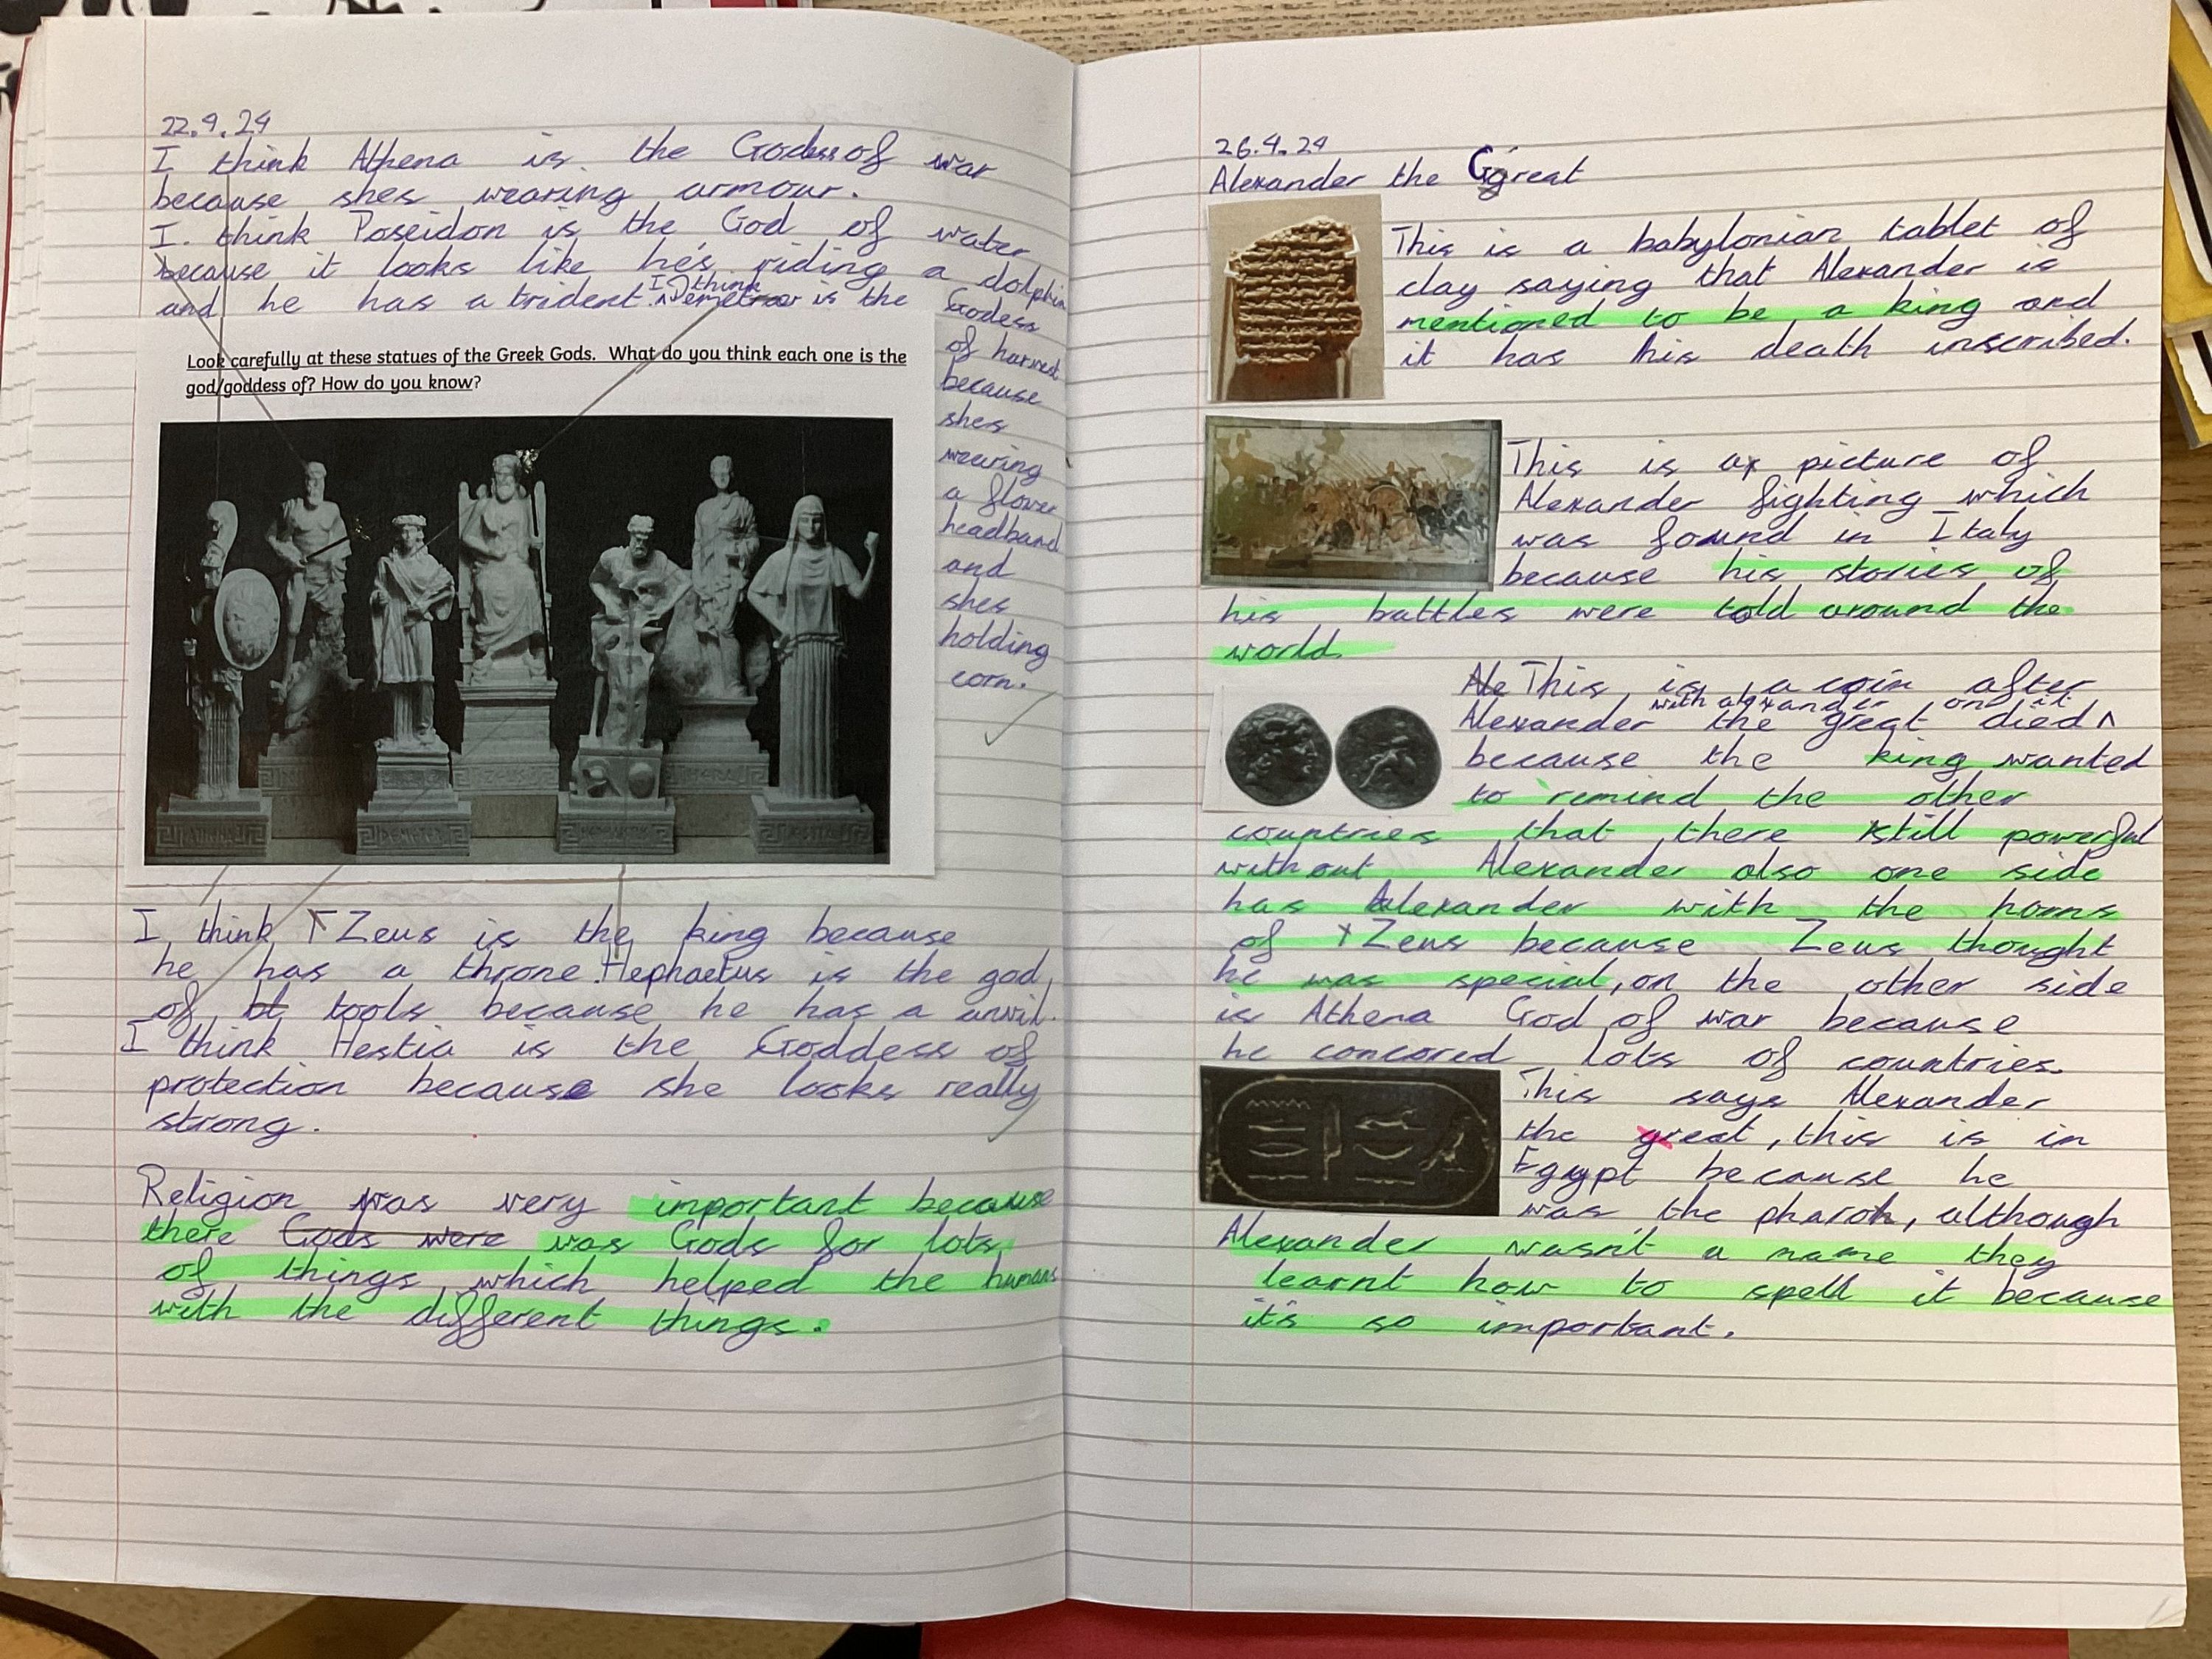 22.4.24
I think Athena is the Godess of war
because shes wearing armour.
I think Poseidon is the God of water
because it looks like he's riding a dolphin
and he has a trident. I think Demetror is the
Godess
of harvest
because
shes
wearing
a flower
headband
and
shes
holding
corn.
Look carefully at these statues of the Greek Gods. What do you think each one is the
god/goddess of? How do you know?
DEMETER
ZEUS
HERA
HESTIA
I think Zeus is the king because
he has a throne. Hephaetus is the god
of bt tools because he has a anvil.
I think Hestia is the Goddess of
protection because she looks really
strong.
Religion was very important because
there Gods were was Gods for lots
of things which helped the humans
with the different things.
26.4.24
Alexander the Great
This is a babylonian tablet of
clay saying that Alexander is
mentioned to be a king and
it has his death inscribed.
This is a picture of
Alexander fighting which
was found in Italy
because his stories of
his battles were told around the
world.
Ale This is a coin after
with alexander on it
Alexander the great died^
because the king wanted
to remind the other
countries that there still powerful
without Alexander also one side
has Alexander with the horns
of Zeus because Zeus thought
he was special, on the other side
is Athena God of war because
he concored lots of countries.
This says Alexander
the great, this is in
Egypt because he
was the pharoh, although
Alexander wasn't a name they
learnt how to spell it because
it's so important.